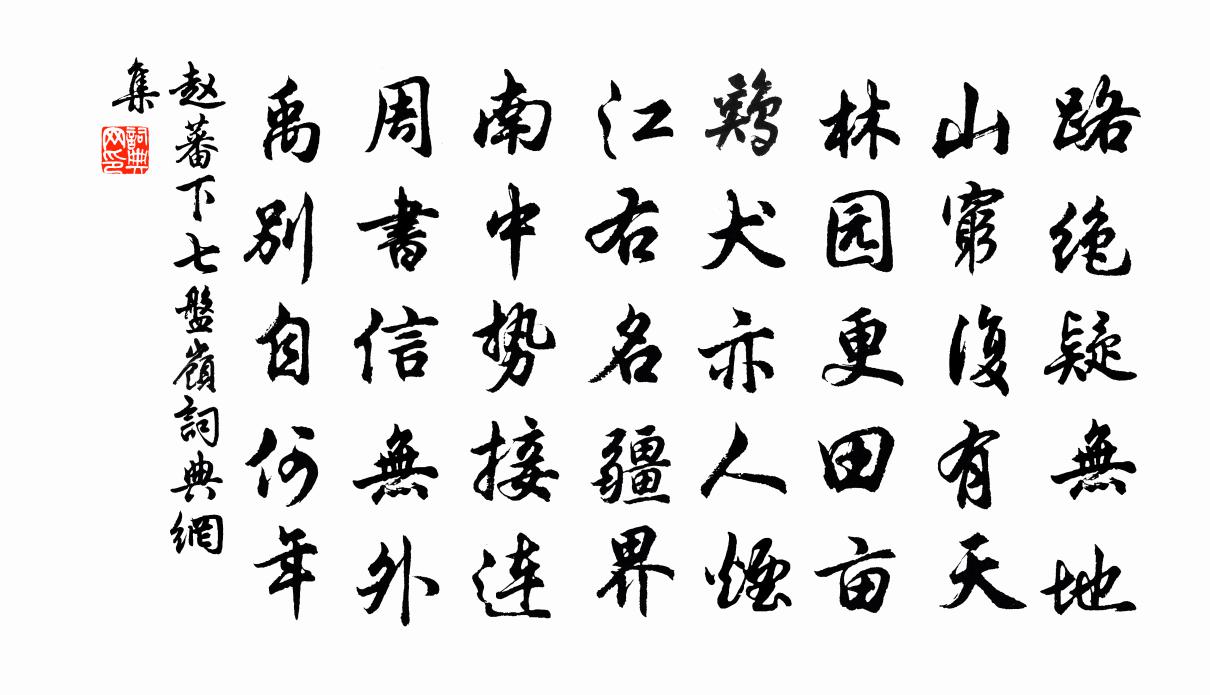 路绝疑無地
山窮復有天
林园更田亩
鷄犬亦人煙
江右名疆界
南中势接连
周書信無外
禹别自何年
赵蕃下七盤嶺詞典網
集
詞典网印